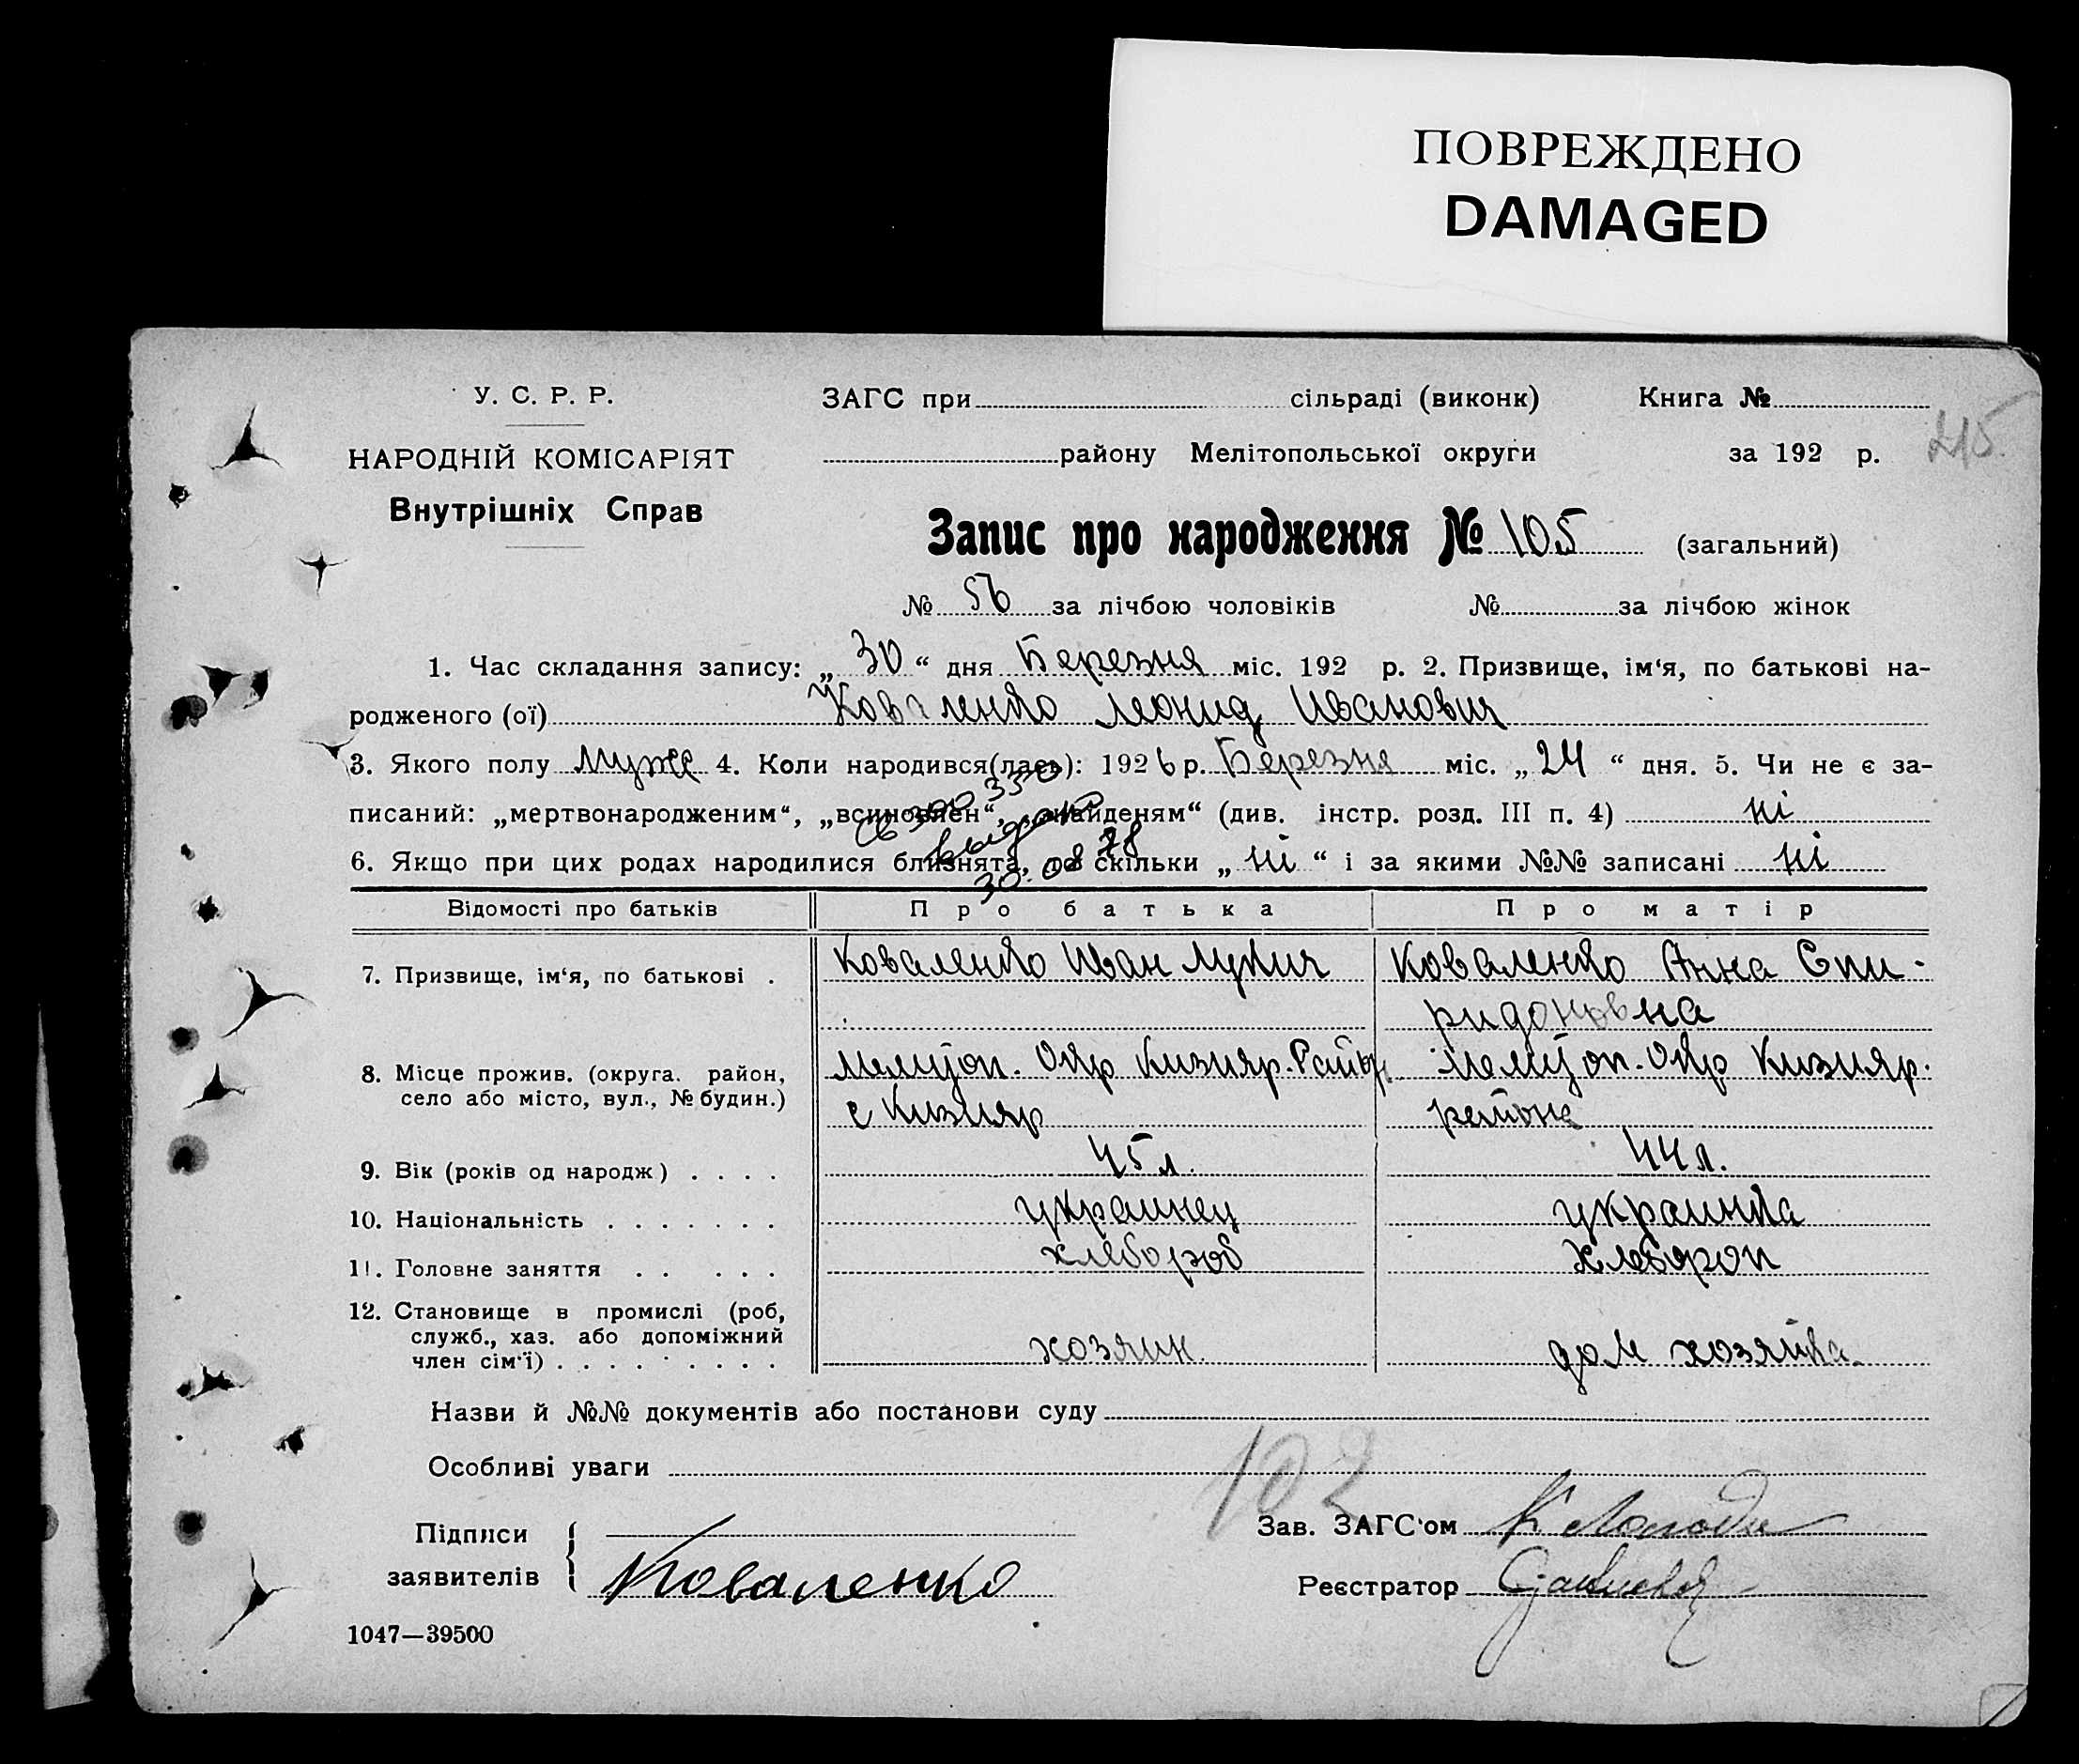 ПОВРЕЖДЕНО
DAMAGED
У. С. Р. Р.
НАРОДНІЙ КОМІСАРІЯТ
Внутрішніх Справ
ЗАГС при сільраді (виконк) Книга №
району Мелітопольської округи за 192 р.
215
Запис про народження № 105 (загальний)
№ 56 за лічбою чоловіків № за лічбою жінок
1. Час складання запису: „30“ дня Березня міс. 192 р. 2. Призвище, ім‘я, по батькові на-
родженого (ої) Коваленко Леонид Иванович
3. Якого полу муже 4. Коли народився(лась): 1926 р. Березня міс. „24“ дня. 5. Чи не є за-
писаний: „мертвонародженим“, „всиновлен“, „знайденям“ (див. інстр. розд. III п. 4) ні
6. Якщо при цих родах народилися близнята, то скільки „ні“ і за якими №№ записані ні
св 300 330
выдано
30.08 78
Відомості про батьків Про батька Про матір
7. Призвище, ім‘я, по батькові . Коваленко Иван Лукич Коваленко Анна Спи-
ридоновна
8. Місце прожив. (округа. район, Мелитоп. Окр Кизияр. Район Мелитоп. Окр Кизияр.
село або місто, вул., № будин.) с Кизияр района
9. Вік (років од народж) . . . . 45 л. 44 л.
10. Національність . . . . . . . украинец украинка
11. Головне заняття . . . . . хлебороб хлебороп
12. Становище в промислі (роб,
служб., хаз. або допоміжний
член сім‘ї) . . . . . . . . . хозяин. дом хозяйка.
Назви й №№ документів або постанови суду
Особливі уваги
102
Підписи
заявителів Коваленко
Зав. ЗАГС‘ом
Реєстратор
1047—39500